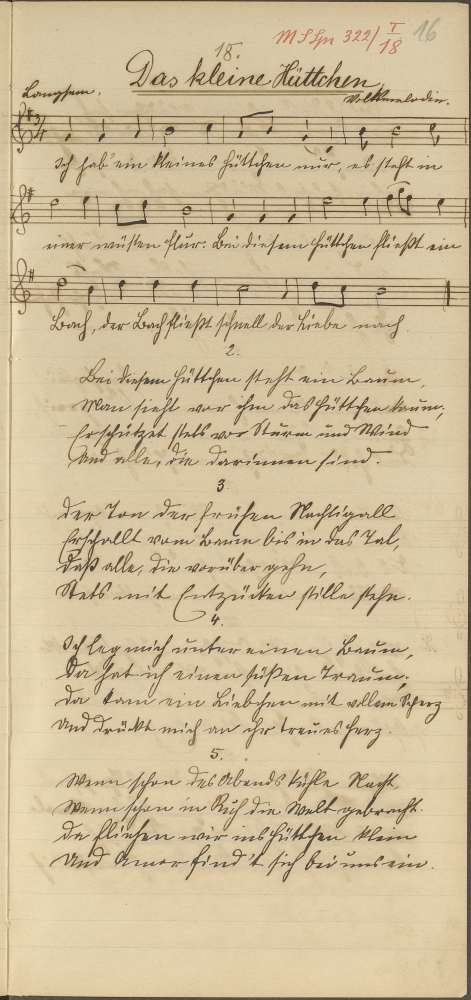 18.
MSHn 322/I/18
16
Das kleine Hüttchen.
Langsam.
Volksmelodie.
3/4
Ich hab' ein kleines Hüttchen nur, es steht in
einer wüsten Flur: Bei diesem Hüttchen fließt ein
Bach, der Bach fließt schnell der Liebe nach.
2.
Bei diesem Hüttchen steht ein Baum,
Man sieht vor ihm das Hüttchen kaum;
Er schützet stets vor Sturm und Wind
Und alle, die darinnen sind.
3.
Der Ton der frühen Nachtigall
Erschallt vom Baum bis in das Tal,
Daß alle, die vorüber gehn,
Stets mit Entzücken stille stehn.
4.
Ich leg mich unter einen Baum,
Da hat ich einen süßen Traum;
Da kam ein Liebchen mit vollem Scherz
Und drückt mich an ihr treues Herz.
5.
Wenn schon des Abends kühle Nacht,
Wenn schon in Ruh die Welt gebracht
Da fliehen wir ins Hüttchen klein
Und Amor find't sich bei uns ein.